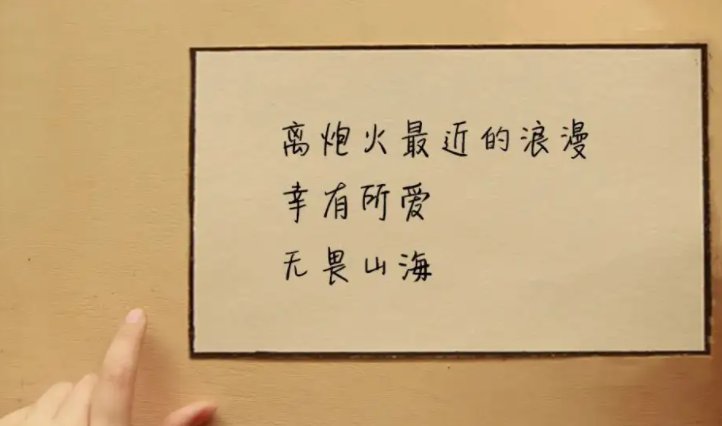 离炮火最近的浪漫
幸有所爱
无畏山海